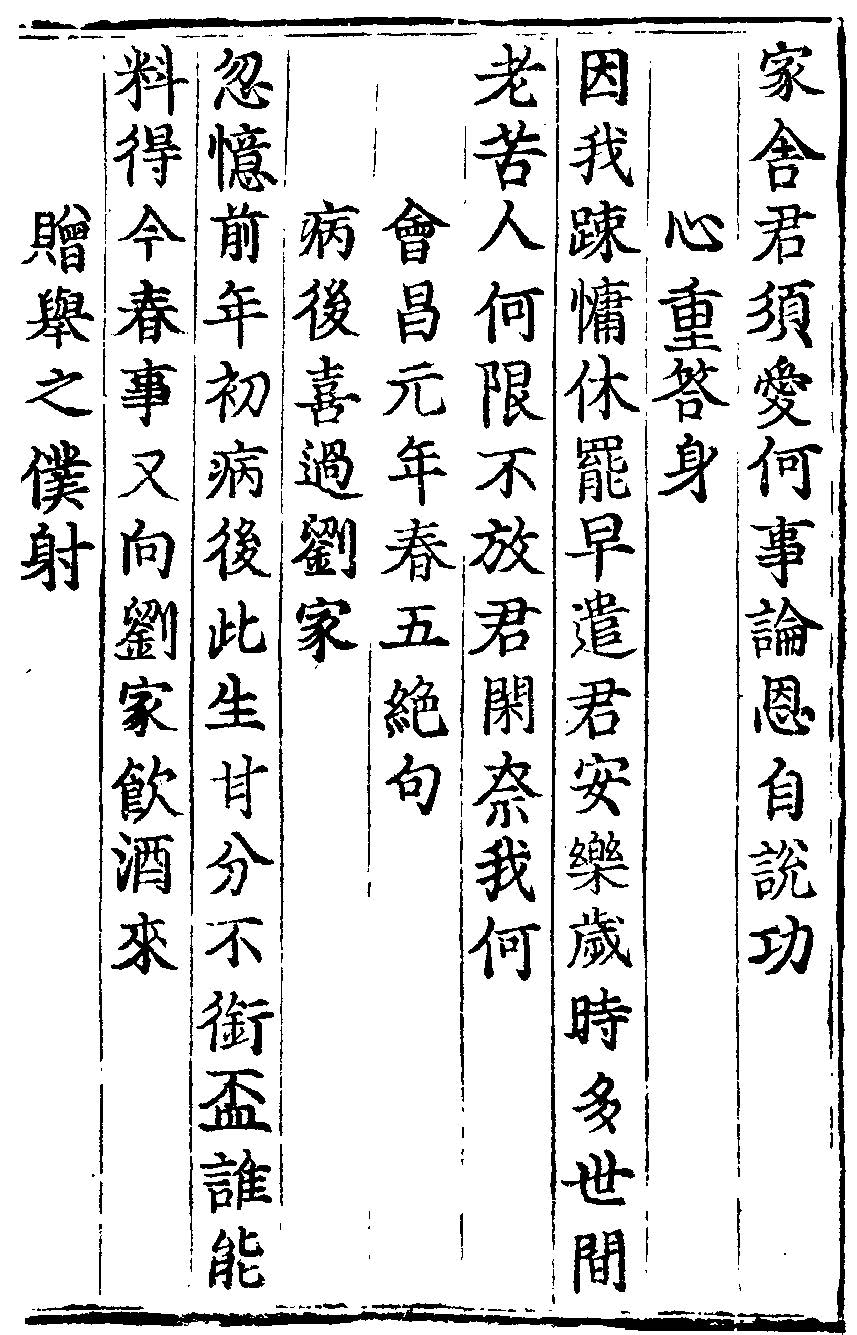 家舎君須愛何事論恩自說功
心重答身
因我踈慵休罷早遣君安樂歲時多世間
老苦人何限不放君閑奈我何
會昌元年春五絶句
病後喜過劉家
忽憶前年初病後此生甘分不銜盃誰能
料得今春事又向劉家飲酒來
贈舉之僕射